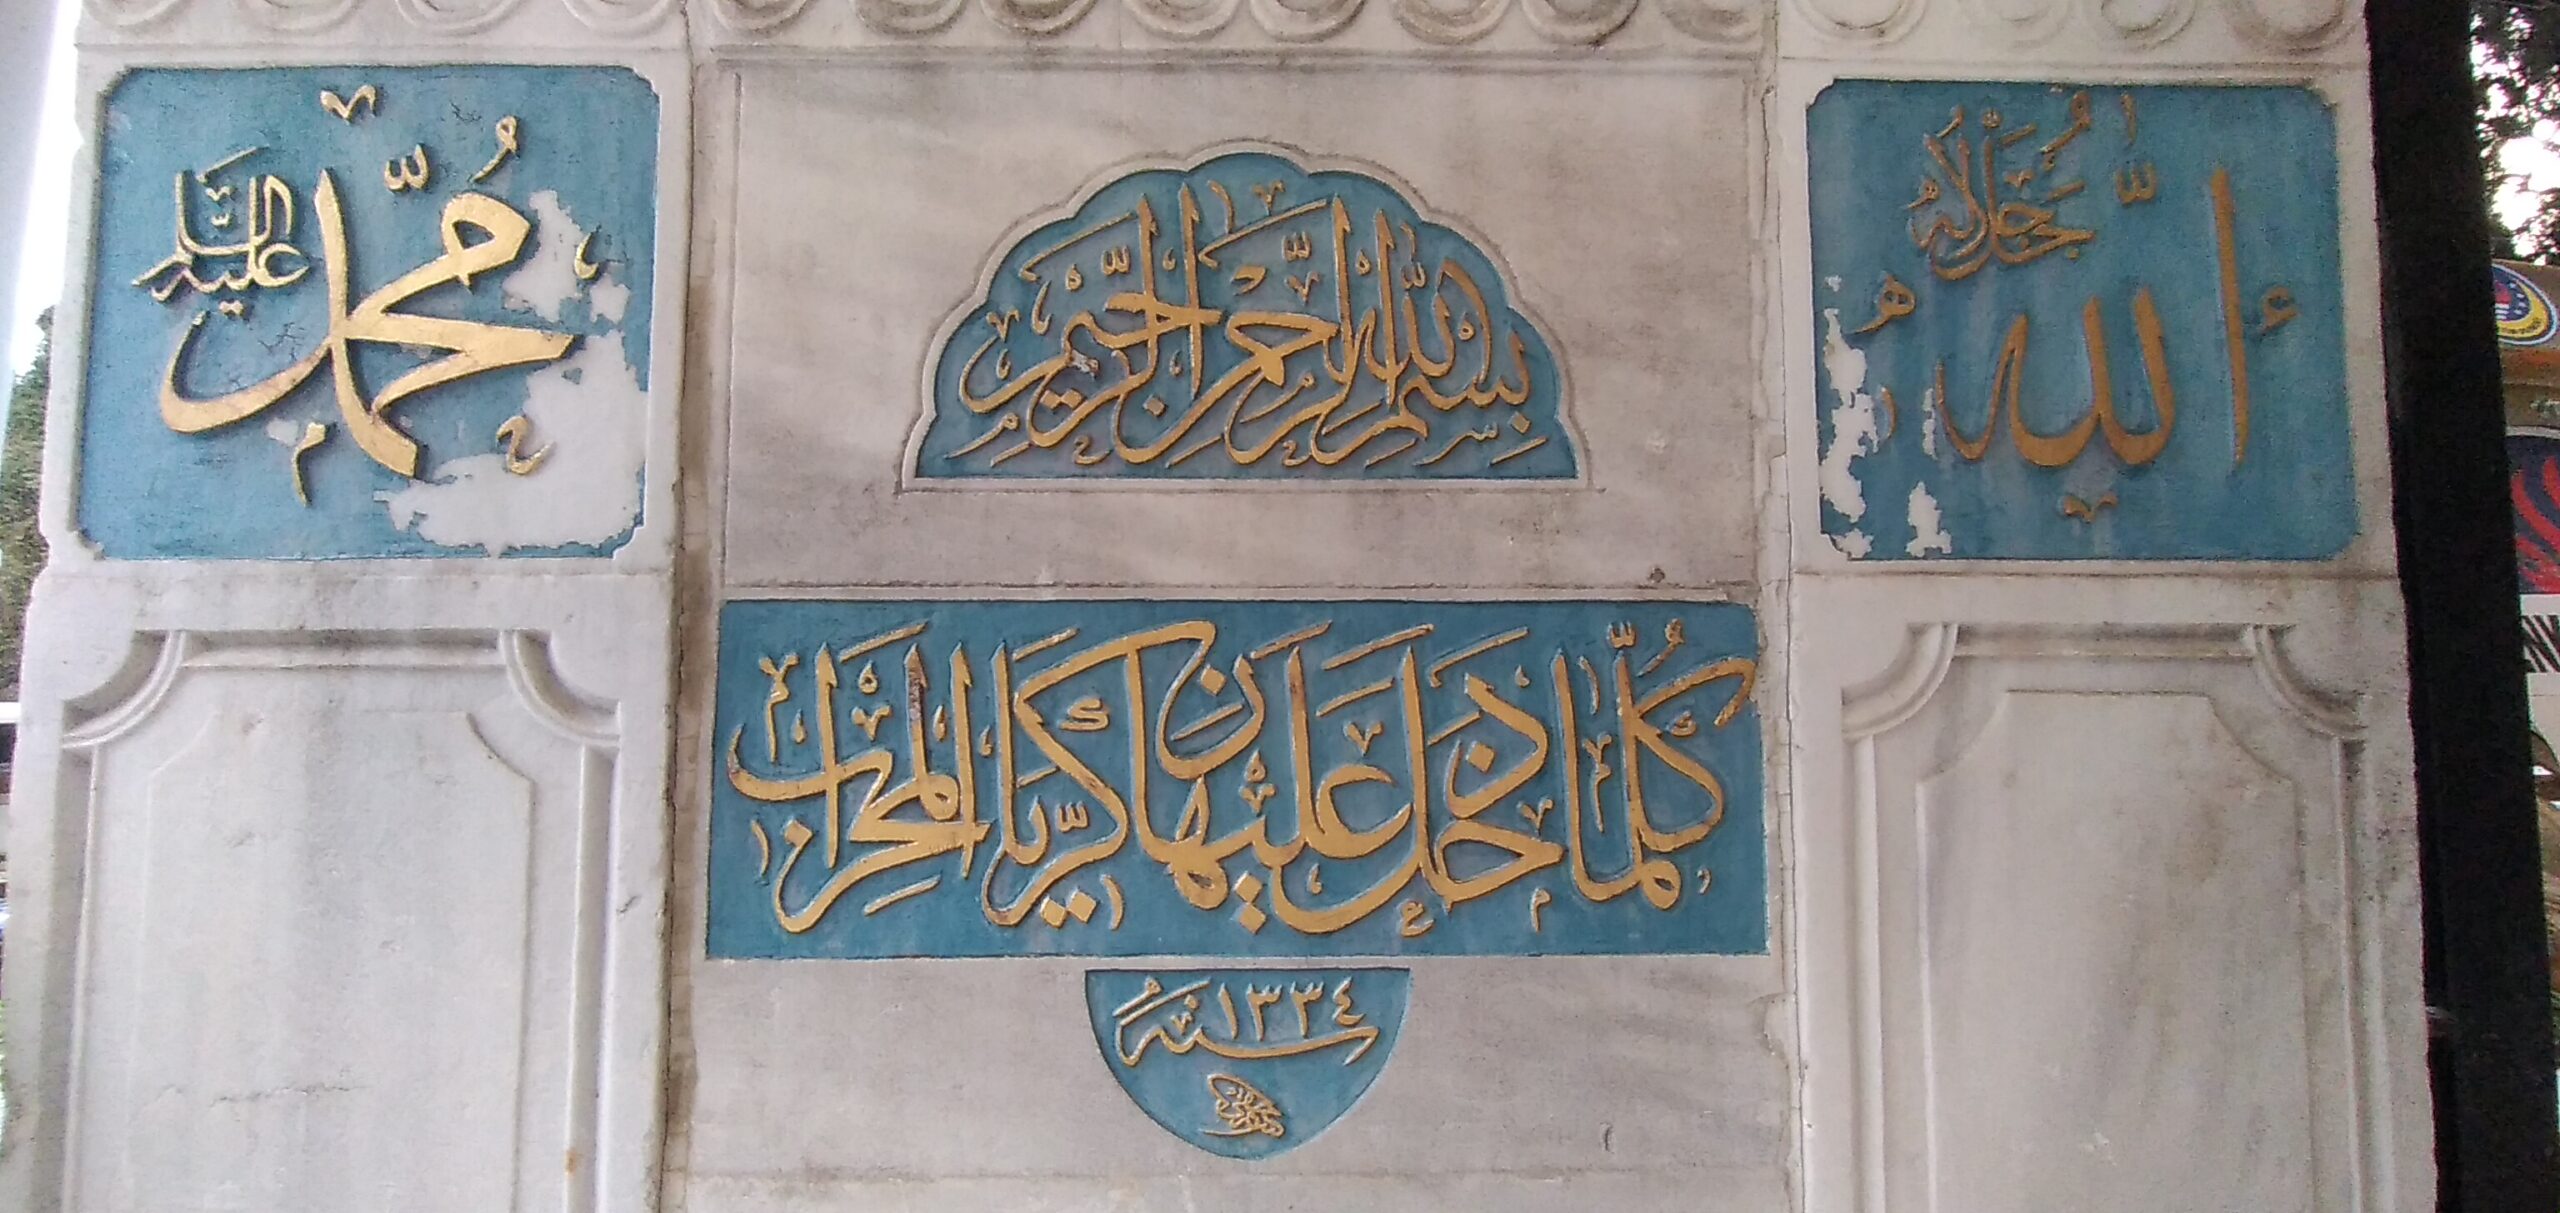 الله جل جلاله
بسم الله الرحمن الرحيم
محمد عليه السلام
كلما دخل عليها زكريا المحراب
سنة ١٣٣٤